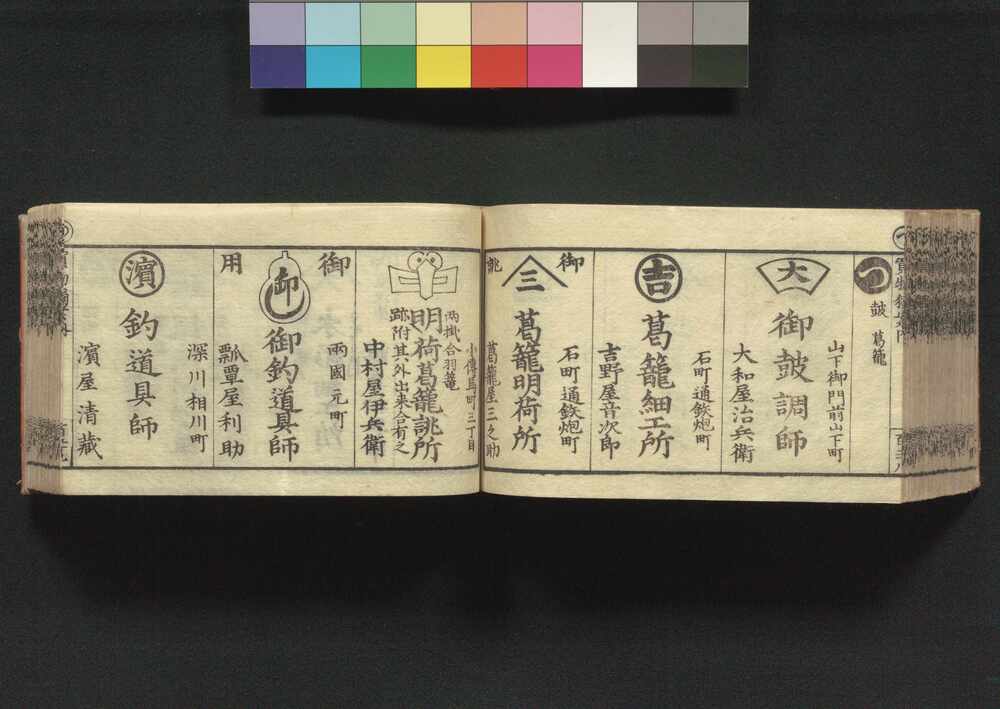 つ
鼓 葛籠
山下御門前山下町
大
御鼓調師
大和屋治兵衛
石町通鉄炮町
吉
葛籠細工所
吉野屋音次郎
御
石町通鉄炮町
三
葛籠明荷所
誂
葛籠屋三之助
小傳馬町三丁目
両掛合羽籠
明荷葛籠誂所
跡附其外出来合有之
中村屋伊兵衛
御
両國元町
御釣道具師
用
瓢覃屋利助
深川相川町
濱
釣道具師
濱屋清藏